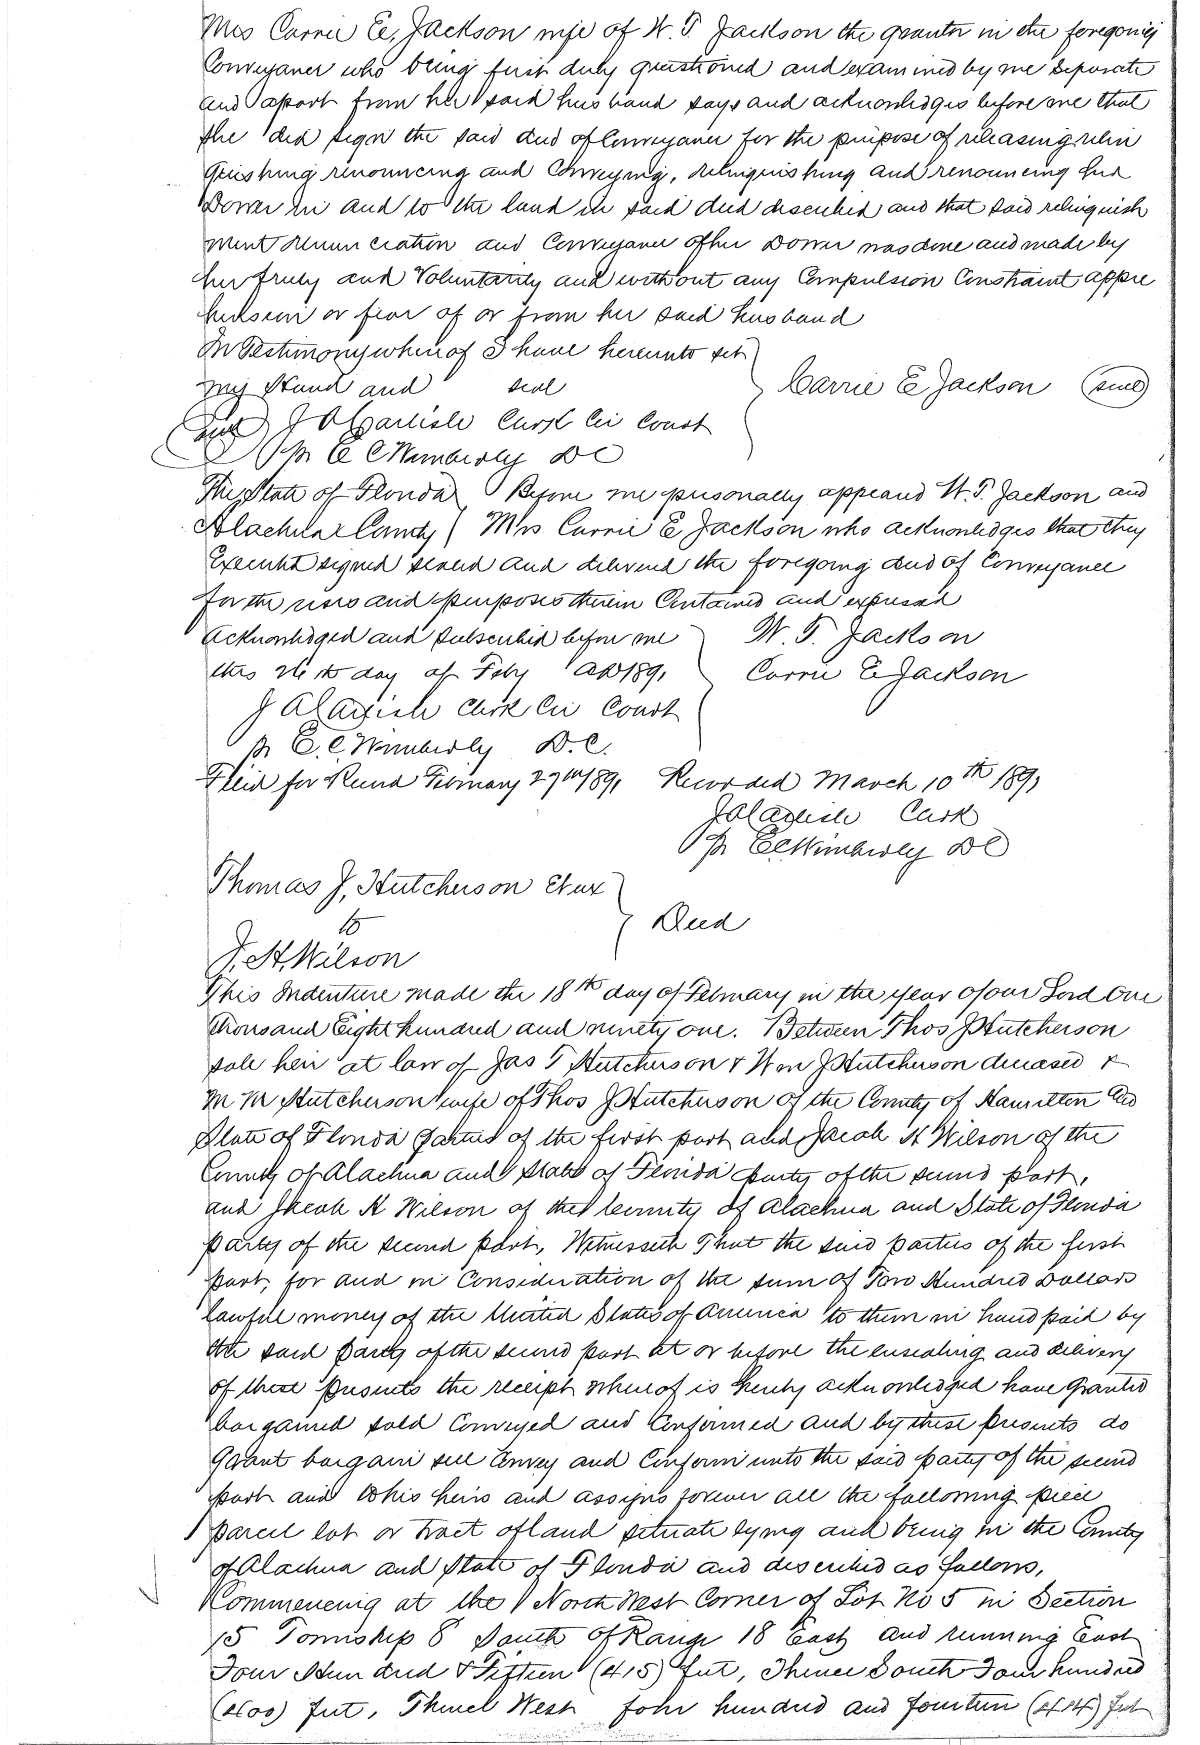 Mrs Carrie E. Jackson wife of W. T. Jackson the grantor in the foregoing
Conveyance who being first duly questioned and examined by me separate
and apart from her said husband says and acknowledges before me that
she did sign the said deed of Conveyance for the purpose of releasing relin
quishing renouncing and Conveying, relinquishing and renouncing her
Dower in and to the land in said deed described and that said relinquish
ment renunciation and Conveyance of her Dower was done and made by
her freely and Voluntarily and without any Compulsion Constraint appre
hension or fear of or from her said husband
In Testimony whereof I have hereunto set
my Hand and seal
Carrie E Jackson (seal)
seal J A Carlisle Clerk Cir Court
pr E C Wimberly D C
The State of Florida Before me personally appeard W. T. Jackson and
Alachua County Mrs Carrie E Jackson who acknowledges that they
Executed signed sealed and delivered the foregoing deed of Conveyance
for the uses and purposes therein Contained and expressed
Acknowledged and subscribed before me W. T. Jackson
this 26th day of Feby AD 1891 Carrie E Jackson
J A Carlisle Clerk Cir Court
pr E. C. Wimberly D.C.
Filed for Record February 27th 1891 Recorded March 10th 1891
J A Carlisle Clerk
pr E C Wimberly D C
Thomas J, Hutcherson Et ux
to Deed
J. H. Wilson
This Indenture made the 18th day of February in the year of our Lord One
thousand Eight hundred and ninety one. Between Thos J Hutcherson
sole heir at law of Jas T Hutcherson & Wm J Hutcherson deceased &
M M Hutcherson wife of Thos J Hutcherson of the County of Hamilton and
State of Florida parties of the first part and Jacob H Wilson of the
County of Alachua and State of Florida party of the second part,
and Jacob H Wilson of the County of Alachua and State of Florida
party of the second part, Witnesseth That the said parties of the first
part, for and in Consideration of the sum of Two Hundred Dollars
lawful money of the United States of America to them in hand paid by
the said party of the second part at or before the ensealing and delivery
of these presents the receipt whereof is hereby acknowledged have Granted
bargained sold Conveyed and Confirmed and by these presents do
Grant bargain sell Convey and Confirm unto the said party of the second
part and to his heirs and assigns forever all the following piece
parcel lot or tract of land situate lying and being in the County
of Alachua and State of Florida and described as follows,
Commencing at the North West Corner of Lot No 5 in Section
15 Township 8 South of Range 18 East and running East
Four Hundred & Fifteen (415) feet, Thence South Four hundred
(400) feet, Thence West four hundred and fourteen (414) feet